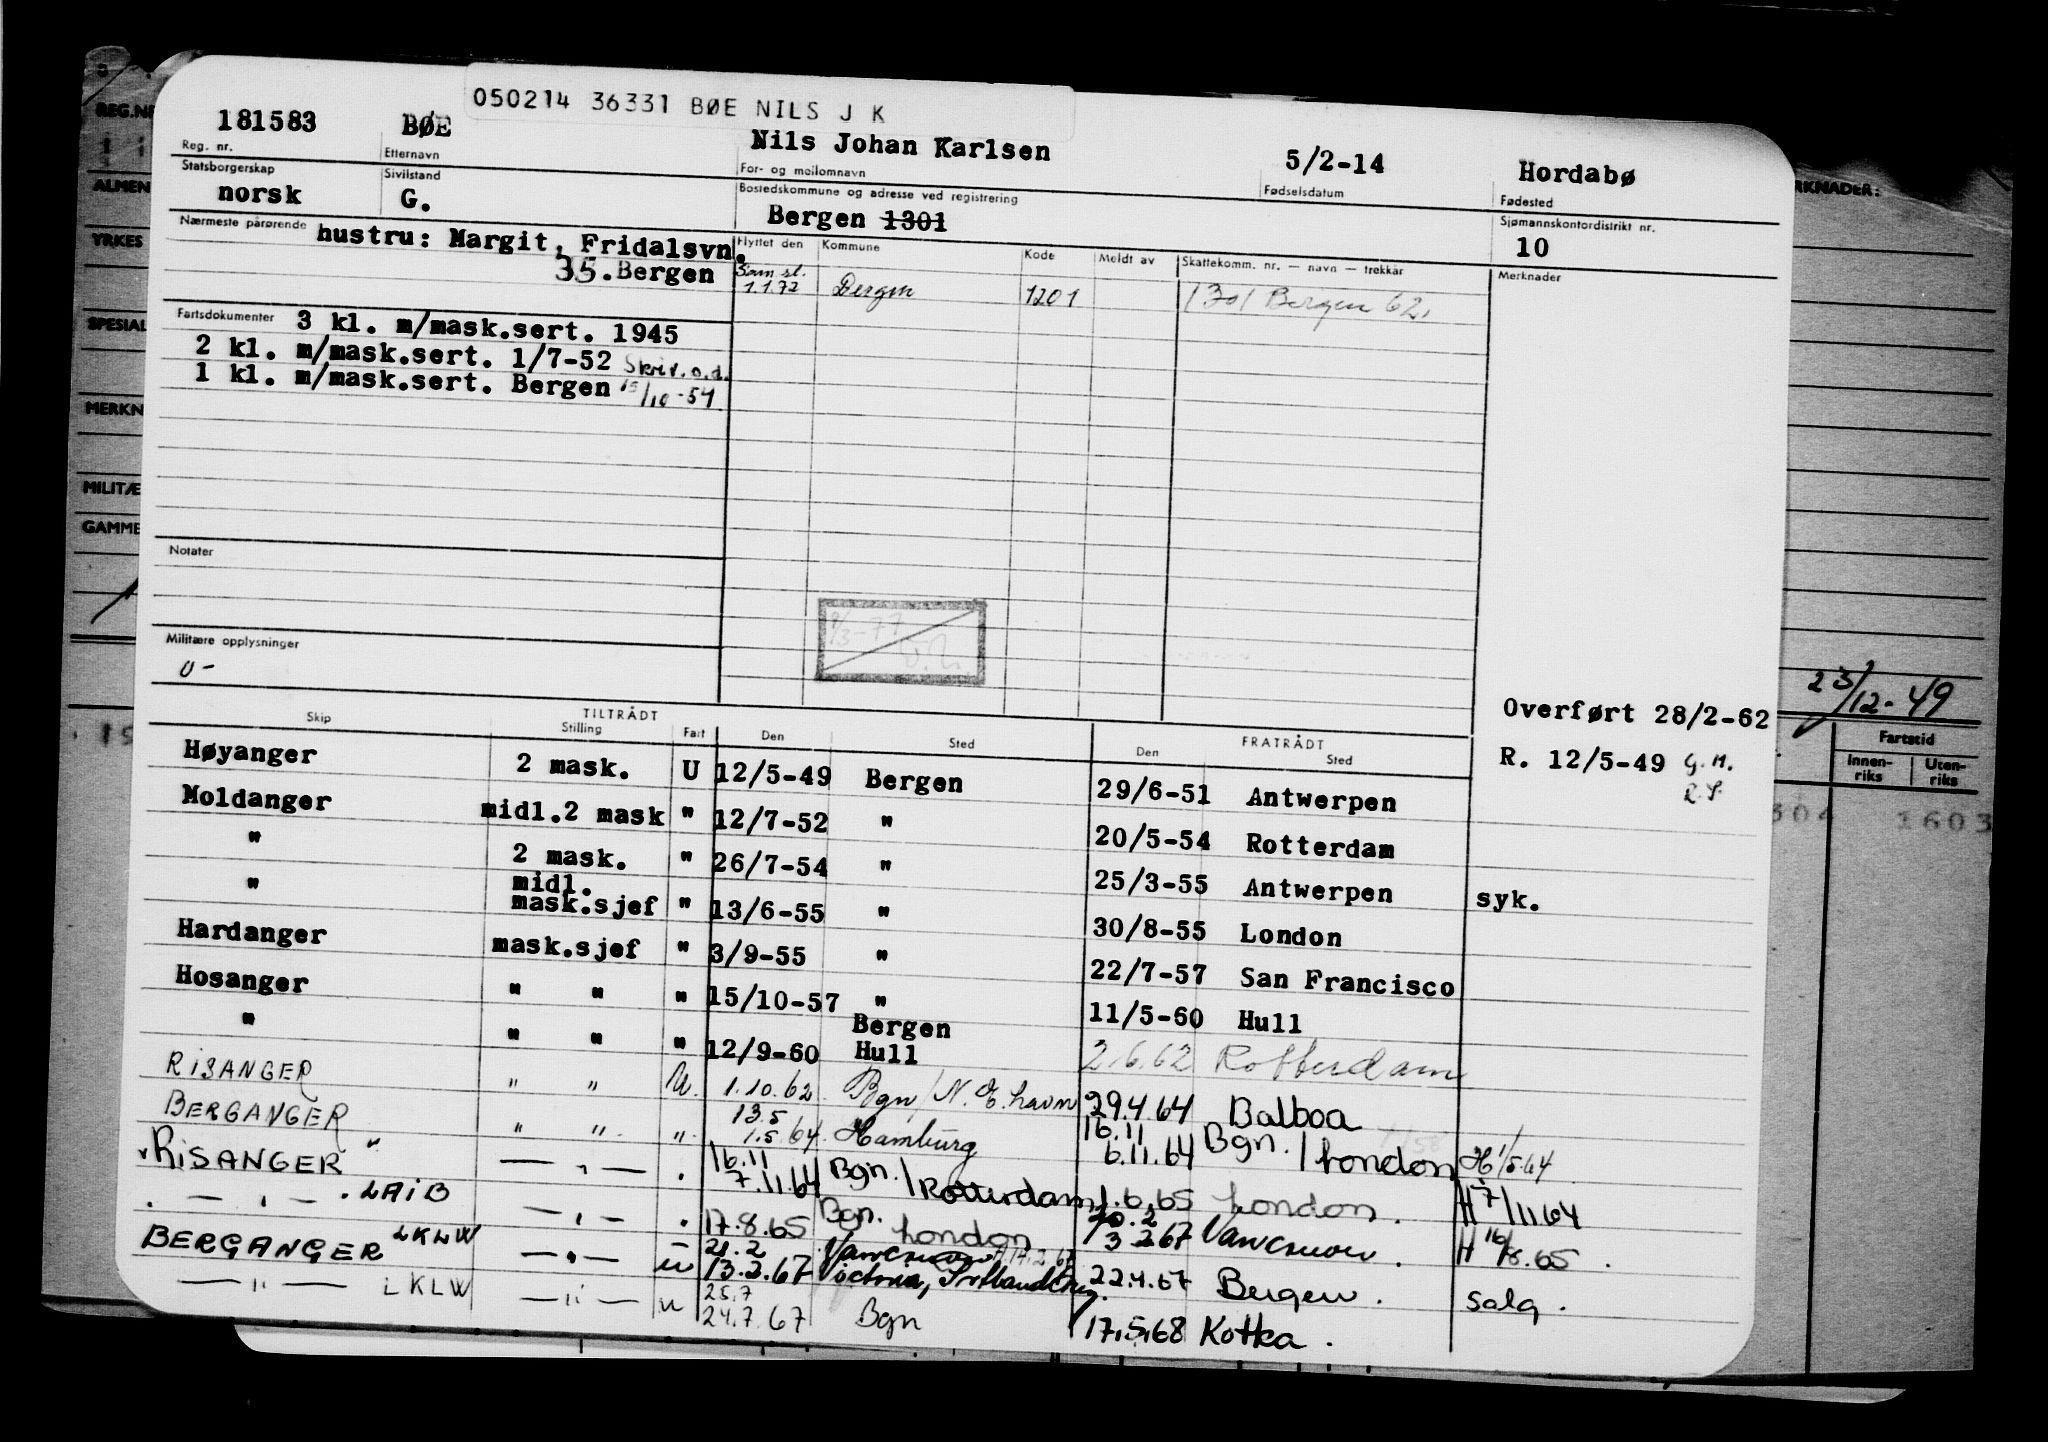 050214 36331 BØE NILS J K
181583 BØE Nils Johan Karlsen 5/2-14 Hordabø
Reg. nr. Etternavn For- og mellomnavn Fødselsdatum Fødested
Statsborgerskap Sivilstand Bostedskommune og adresse ved registrering Sjømannskontordistrikt nr.
norsk G. Bergen 1301 10
Nærmeste pårørende hustru: Margit, Fridalsvn.
35. Bergen
Flyttet den Kommune Kode Meldt av Skattekomm. nr. — navn — trekkår Merknader
1.1.72 Bergen 1201 1301 Bergen 62.
Fartsdokumenter 3 kl. m/mask.sert. 1945
2 kl. m/mask.sert. 1/7-52 Skriv. o.d.
1 kl. m/mask.sert. Bergen 15/10-54
Notater
Militære opplysninger
U-
REG.NR
ALMEN
YRKES
SPESIAL
MERKN
MILITÆ
GAMME
RKNADER:
23/12-49
Fartstid
Innen-riks Uten-riks
304 1603
Overført 28/2-62
R. 12/5-49 G.M.
TILTRÅDT FRATRÅDT
Skip Stilling Fart Den Sted Den Sted
Høyanger 2 mask. U 12/5-49 Bergen 29/6-51 Antwerpen
Moldanger midl.2 mask " 12/7-52 " 20/5-54 Rotterdam
" 2 mask. " 26/7-54 " 25/3-55 Antwerpen syk.
" midl. mask.sjef " 13/6-55 " 30/8-55 London
Hardanger mask.sjef " 3/9-55 " 22/7-57 San Francisco
Hosanger " " " 15/10-57 " 11/5-60 Hull
" " " " 12/9-60 Bergen Hull 2.6.62 Rotterdam
RISANGER " " U. 1.10.62 Bgn/N.E.havn 29.4.64 Balboa
BERGANGER " " " 13.5 1.5.64 Hamburg 16.11 6.11.64 Bgn./London H 1/5.64
RISANGER " — " — . 16.11 7.11.64 Bgn./Rotterdam 1.6.65 London. H 7/11 64
— " — . LAIB — " — . 17.8.65 Bgn. London 20.2 3.2.67 Vancouver. H 16/8.65.
BERGANGER LKLW — " — U 21.2 13.2.67 Vancouver Victoria, 22.4.67 Bergen. salg.
— " — LKLW — " — U 25.7 24.7.67 Bgn 17.5.68 Kotka.